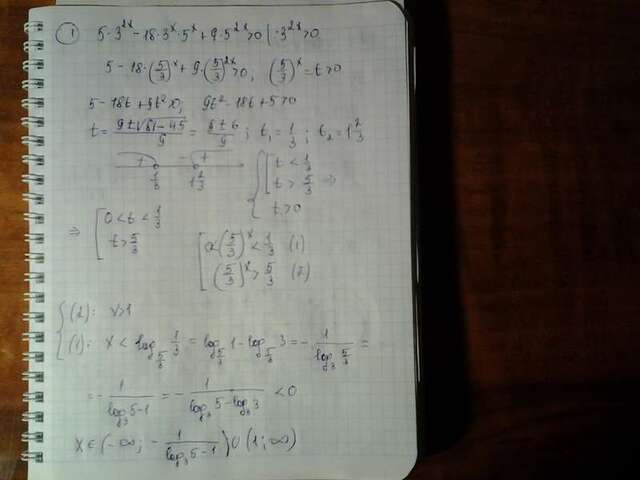 1 5·3^{2x} - 18·3^x·5^x + 9·5^{2x} > 0 | ·3^{2x} > 0
5 - 18·(5/3)^x + 9·(5/3)^{2x} > 0, (5/3)^x = t > 0
5 - 18t + 9t² > 0; 9t² - 18t + 5 > 0
t = (9 ± √(81 - 45))/9 = (9 ± 6)/9; t₁ = 1/3; t₂ = 1 2/3
+ - +
1/3 1 2/3
{ [ t < 1/3
t > 5/3 ⇒
t > 0
⇒ [ 0 < t < 1/3
t > 5/3
[ 0 < (5/3)^x < 1/3 (1)
(5/3)^x > 5/3 (2)
{ (2): x > 1
(1): x < log_{5/3} 1/3 = log_{5/3} 1 - log_{5/3} 3 = - 1/(log₃ 5/3) =
= - 1/(log₃ 5 - 1) = - 1/(log₃ 5 - log₃ 3) < 0
x ∈ (-∞; - 1/(log₃ 5 - 1)) ∪ (1; ∞)